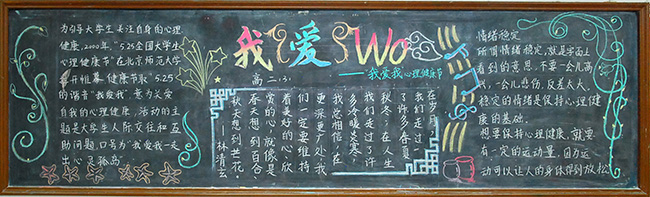 为引导大学生关注自身的心理
健康,2000年,"5.25全国大学生
心理健康节"在北京师范大学
开帷幕,健康节取"5.25"
的谐音"我爱我"意为关爱
自我的心理健康,活动的主
题是大学生人际交往和互
助问题,口号为"我爱我—走
出心灵孤岛"
我爱Wo
——"我爱我"心理健康节
高二.3.
在岁月,
我们走过
了许多春夏
秋冬,在人生
我们走过了许
多冷暖炎寒
我总相信,在
更深更广处,我
们一定要维持
着美好的心欣
赏的心,就像是
春天想到百合,
秋天想到芒花。
——林清玄
情绪稳定
所谓情绪稳定,就是字面上
看到的意思,不要一会儿高
兴,一会儿悲伤,反差太大。
稳定的情绪是保持心理健
康的基础。
想要保持心理健康,就要
有一定的运动量,因为运
动可以让人的身体得到放松